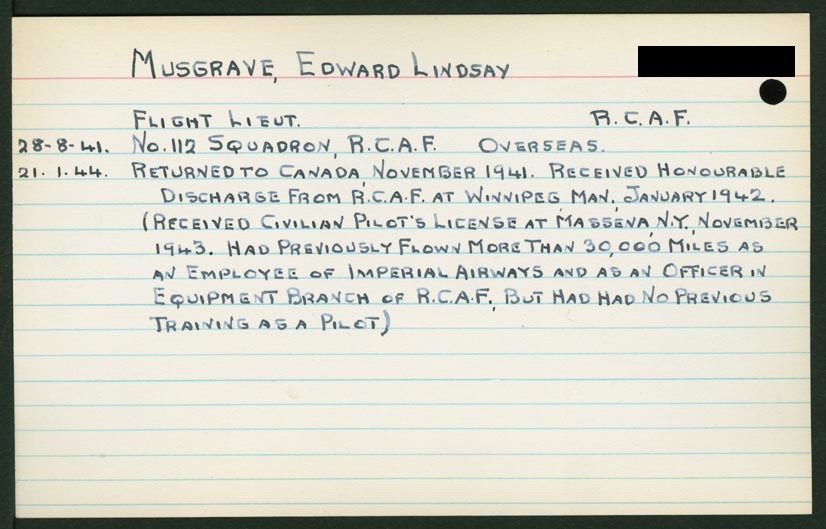 MUSGRAVE, EDWARD LINDSAY
FLIGHT LIEUT. R.C.A.F.
28-8-41. No. 112 SQUADRON, R.C.A.F. OVERSEAS.
21.1.44. RETURNED TO CANADA, NOVEMBER 1941. RECEIVED HONOURABLE
DISCHARGE FROM R.C.A.F. AT WINNIPEG MAN. JANUARY 1942.
(RECEIVED CIVILIAN PILOT'S LICENSE AT MASSENA, N.Y., NOVEMBER
1943. HAD PREVIOUSLY FLOWN MORE THAN 30,000 MILES AS
AN EMPLOYEE OF IMPERIAL AIRWAYS AND AS AN OFFICER IN
EQUIPMENT BRANCH OF R.C.A.F., BUT HAD HAD NO PREVIOUS
TRAINING AS A PILOT)